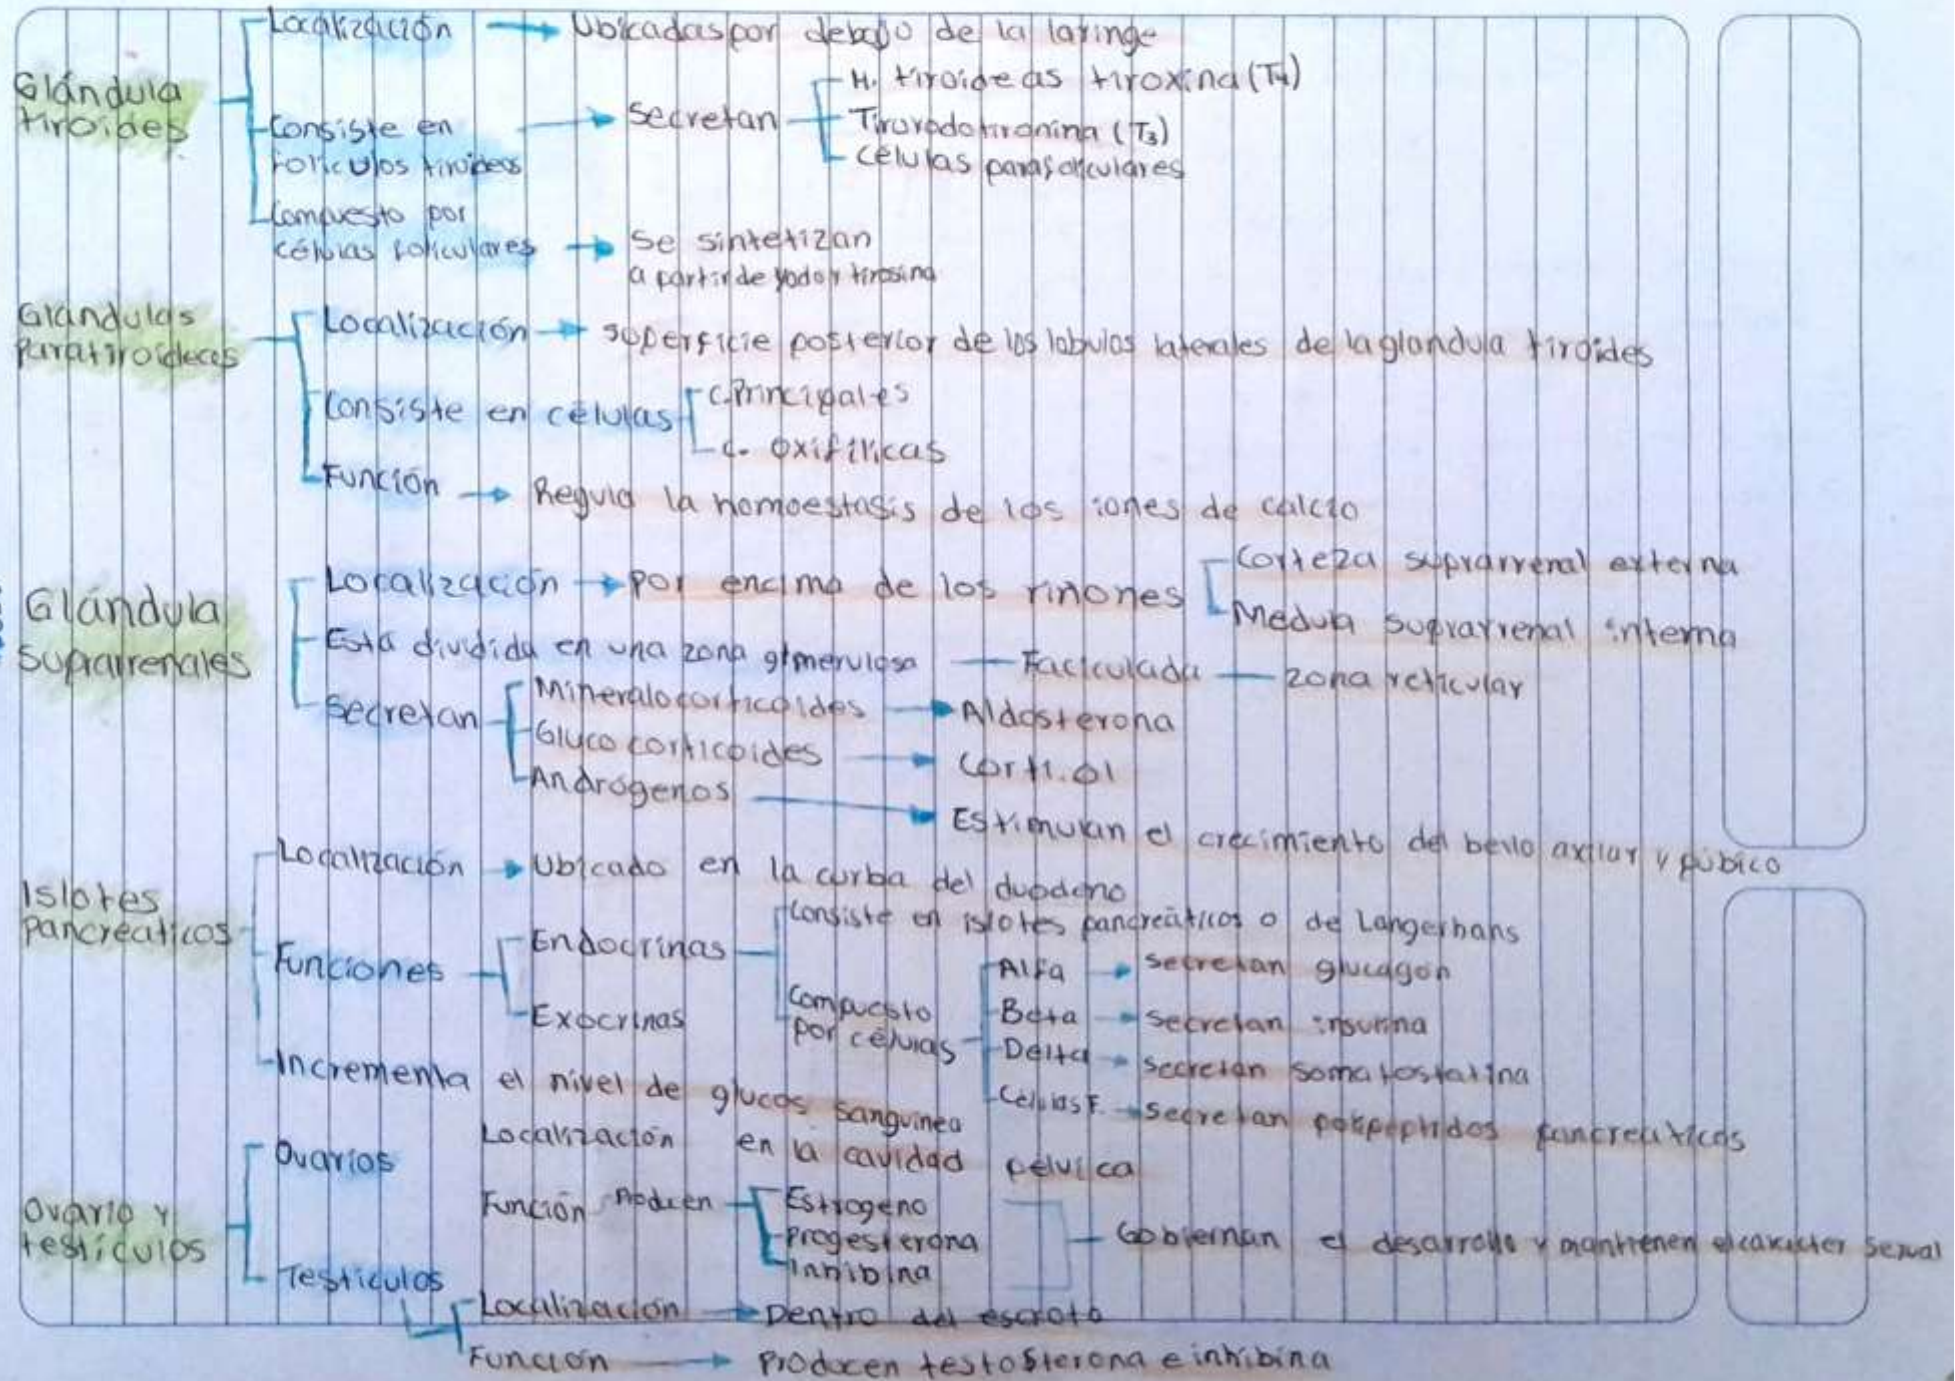 Glándula
tiroides
Localización → Ubicadas por debajo de la laringe
Consiste en
folículos tiroideos
Secretan
H. tiroideas tiroxina (T4)
Tiroyodotironina (T3)
Células parafoliculares
Compuesto por
células foliculares
Se sintetizan
a partir de yodo y tirosina
Glándulas
paratiroideas
Localización → superficie posterior de los labulos laterales de la glandula tiroides
Consiste en células
C. Principales
C. oxifílicas
Función → Regula la homoestasis de los iones de calcio
Glándula
suprarrenales
Localización → por encima de los riñones
Corteza suprarrenal externa
Medula suprarrenal interna
Está dividida en una zona glmerulosa — Faciculada — zona reticular
Secretan
Mineralocorticoides → Aldosterona
Glucocorticoides → Corti.ol
Andrógenos → Estimulan el crecimiento del bello axilar y púbico
Islotes
pancreáticos
Localización → Ubicado en la curba del duodeno
Funciones
Endocrinas
Consiste en islotes pancreáticos o de Langerhans
Compuesto
por células
Alfa → secretan glucagón
Beta → secretan insulina
Delta → secretan somatostatina
Células F. → secretan polipeptidos pancreáticos
Exocrinas
Incrementa el nivel de glucos sanguinea
Ovario y
testículos
Ovarios
Localización en la cavidad pélvica
Función Producen
Estrogeno
Progesterona
Inhibina
Gobiernan el desarrollo y mantienen el carácter sexual
Testículos
Localización → Dentro del escroto
Función → Producen testosterona e inhibina